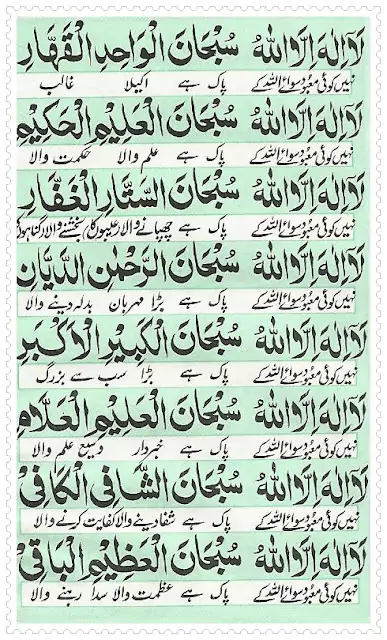 لَآ اِلٰهَ اِلَّا اللّٰهُ سُبْحَانَ الْوَاحِدِ الْقَهَّارِ
نہیں کوئی معبود سوائے اللہ کے پاک ہے اکیلا غالب
لَآ اِلٰهَ اِلَّا اللّٰهُ سُبْحَانَ الْعَلِيْمِ الْحَكِيْمِ
نہیں کوئی معبود سوائے اللہ کے پاک ہے علم والا حکمت والا
لَآ اِلٰهَ اِلَّا اللّٰهُ سُبْحَانَ السَّتَّارِ الْغَفَّارِ
نہیں کوئی معبود سوائے اللہ کے پاک ہے چھپانے والا عیبوں کا بخشنے والا گناہوں کا
لَآ اِلٰهَ اِلَّا اللّٰهُ سُبْحَانَ الرَّحْمٰنِ الدَّيَّانِ
نہیں کوئی معبود سوائے اللہ کے پاک ہے بڑا مہربان بدلہ دینے والا
لَآ اِلٰهَ اِلَّا اللّٰهُ سُبْحَانَ الْكَبِيْرِ الْاَكْبَرِ
نہیں کوئی معبود سوائے اللہ کے پاک ہے بڑا سب سے بزرگ
لَآ اِلٰهَ اِلَّا اللّٰهُ سُبْحَانَ الْعَلِيْمِ الْعَلَّامِ
نہیں کوئی معبود سوائے اللہ کے پاک ہے خبردار وسیع علم والا
لَآ اِلٰهَ اِلَّا اللّٰهُ سُبْحَانَ الشَّافِى الْكَافِىْ
نہیں کوئی معبود سوائے اللہ کے پاک ہے شفا دینے والا کفایت کرنے والا
لَآ اِلٰهَ اِلَّا اللّٰهُ سُبْحَانَ الْعَظِيْمِ الْبَاقِىْ
نہیں کوئی معبود سوائے اللہ کے پاک ہے عظمت والا سدا رہنے والا